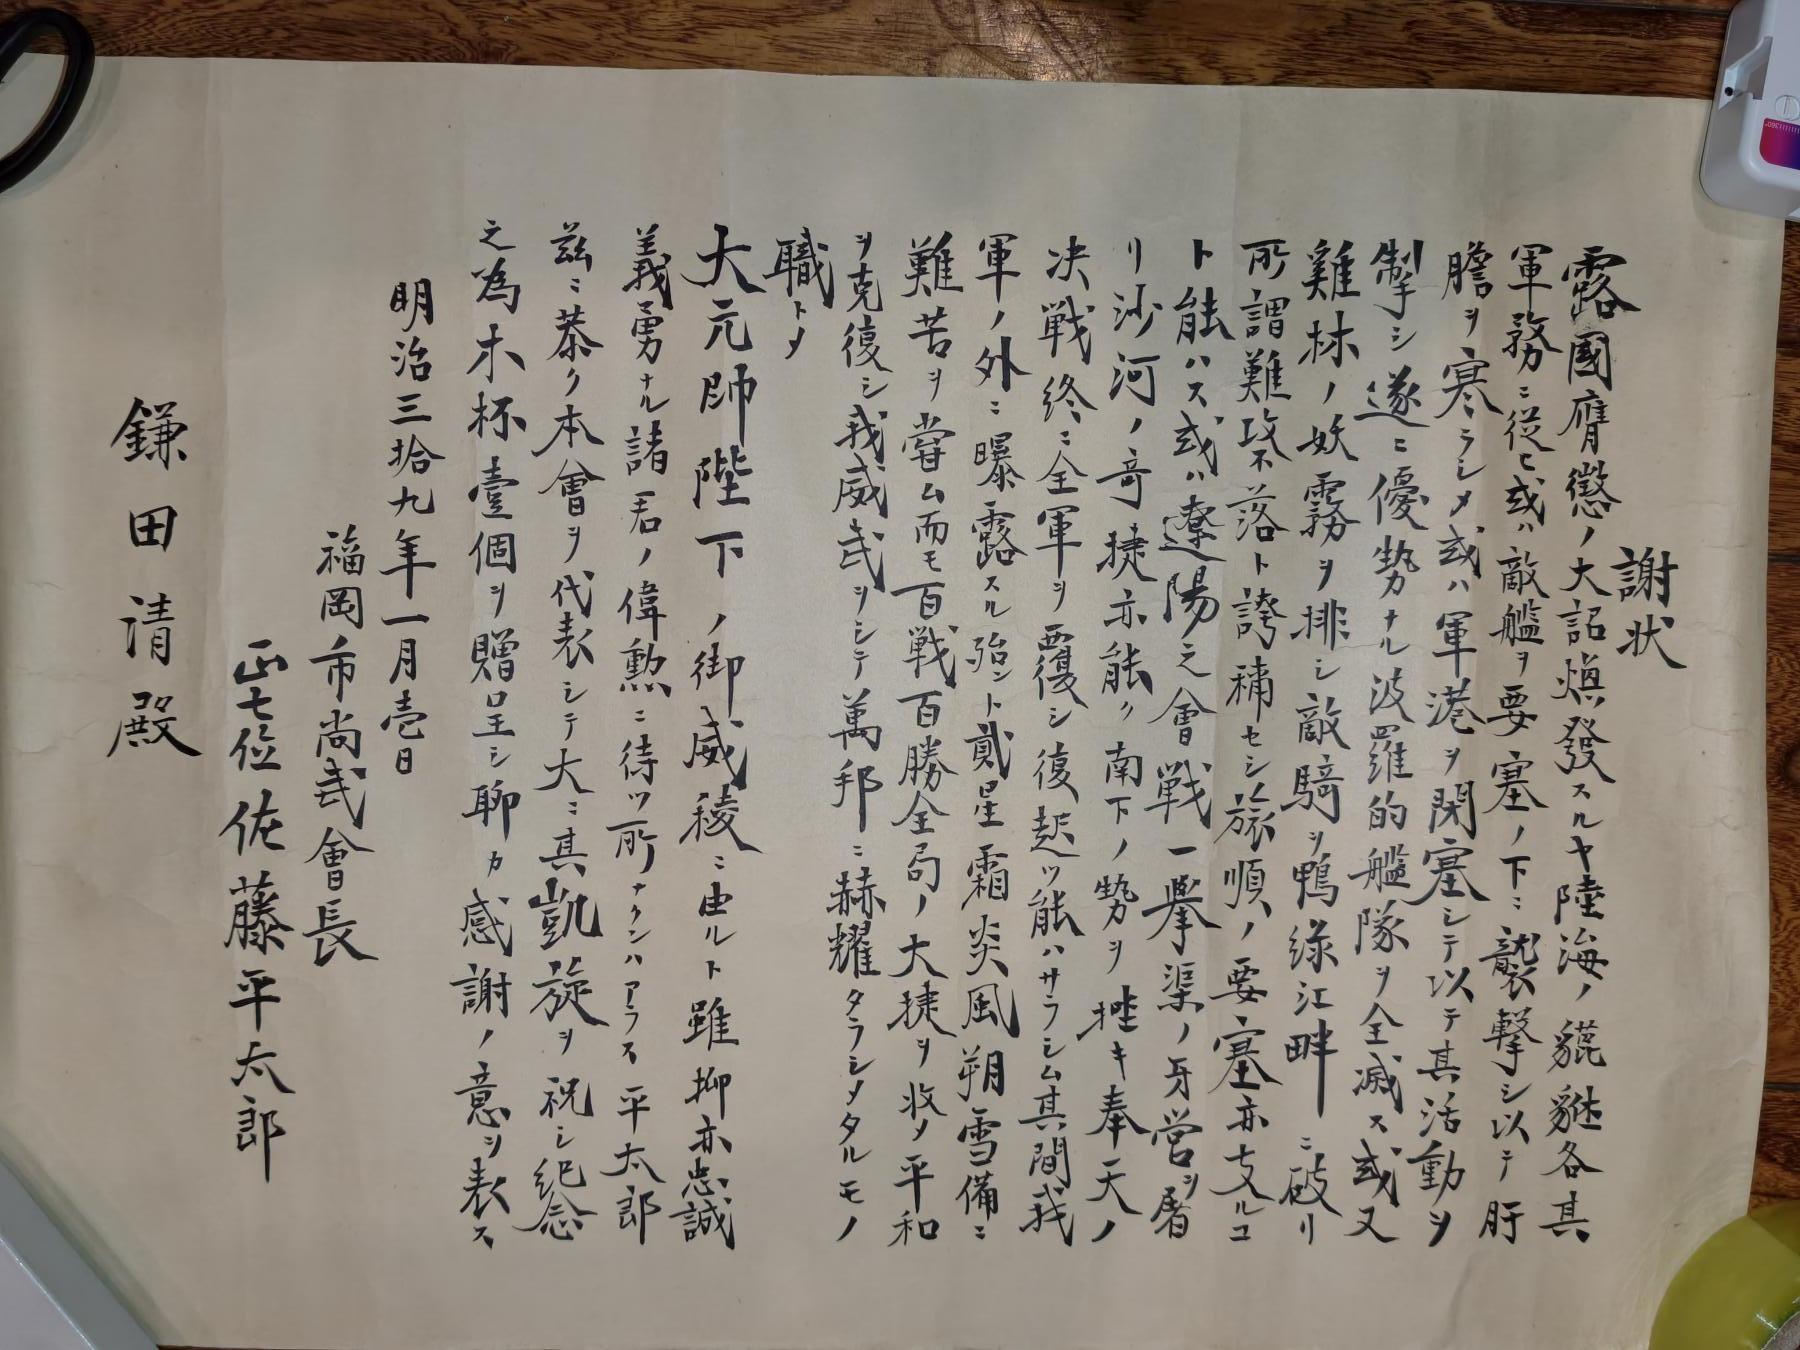 謝状
露國膺懲ノ大詔煥發スルヤ陸海ノ貔貅各其
軍務ニ從ヒ或ハ敵艦ヲ要塞ノ下ニ襲撃シ以テ肝
膽ヲ寒ラシメ或ハ軍港ヲ閉塞シテ以テ其活動ヲ
制シ遂ニ優勢ナル波羅的艦隊ヲ全滅ス或又
雞林ノ妖霧ヲ排シ敵騎ヲ鴨綠江畔ニ破リ
所謂難攻不落ト誇稱セシ旅順ノ要塞亦支ルコ
ト能ハス或ハ遼陽之會戦一擧渠ノ牙営ヲ屠
リ沙河ノ奇捷亦能ク南下ノ勢ヲ挫キ奉天ノ
决戦終ニ全軍ヲ覆シ復起ツ能ハサラシム其間我
軍ノ外ニ曝露スル殆ント貳星霜炎風朔雪備ニ
難苦ヲ嘗ム而モ百戦百勝全局ノ大捷ヲ收メ平和
ヲ克復シ我威武ヲシテ萬邦ニ赫耀タラシメタルモノ
職トメ
大元帥陛下ノ御威稜ニ由ルト雖抑亦忠誠
義勇ナル諸君ノ偉勲ニ待ツ所ナクンハアラス平太郎
茲ニ恭ク本會ヲ代表シテ大ニ其凱旋ヲ祝シ紀念
之為木杯壹個ヲ贈呈シ聊カ感謝ノ意ヲ表ス
明治三拾九年一月壱日
福岡市尚武會長
正七位佐藤平太郎
鎌田清殿